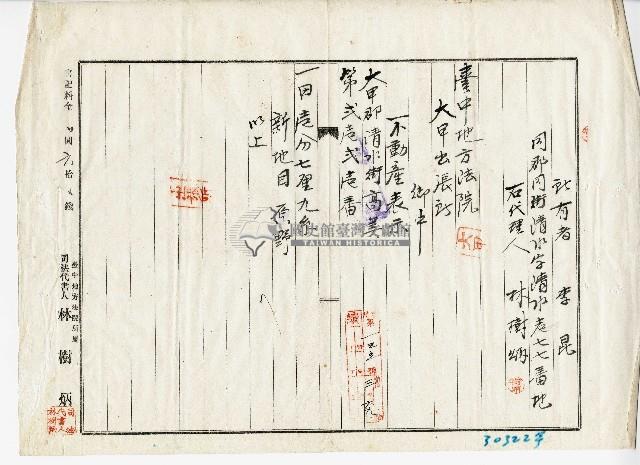 所有者 李昆
同郡同街清水字清水壱七七番地
右代理人 林樹炳
臺中地方法院
大甲出張所
御中
一不動産表示
大甲郡清水街高美
第弍壱弍壱番
一田壱分七厘九毛
新地目 原野
以上
國史館臺灣文獻館
TAIWAN HISTORICA
臺中地方法院所屬
司法代書人 林樹炳
30322字